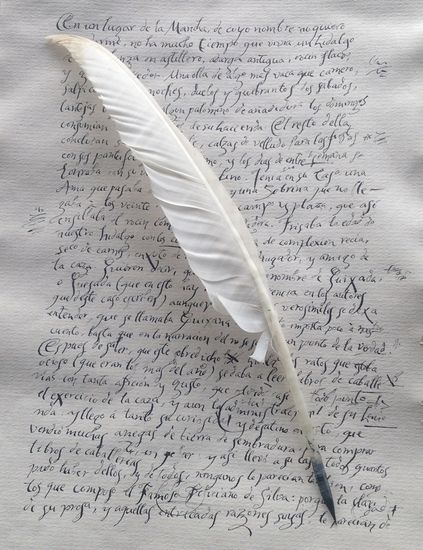 En un lugar de la Mancha, de cuyo nombre no quiero
no ha mucho tiempo que vivia un hidalgo
en astillero, adarga antigua, rocin flaco,
y Una olla de algo mas vaca que carnero,
noches, duelos y quebrantos los sabados,
lantejas palomino de añadidura los domingos
consumian de su hacienda. El resto della
concluian calzas de velludo para las fiestas
con sus pantuflos y los dias de entre semana se
honraba con su Tenia en su casa una
Ama que pasaba y una Sobrina que no lle
gaba a los veinte campo y plaza, que asi
ensillaba el rocin Frisaba la edad de
nuestro Hidalgo con los de complexion recia,
seco de carnes, y amigo de
la caza. Quieren nombre de Quixada,
o Quesada (que en esto los autores
que deste caso escriven) aunque verosimiles se dexa
entender, que se llamaba Quixana importa poco a nuestro
cuento, basta que en la narracion del no se un punto de la verdad.
Es pues de saber, que este sobredicho los ratos que estaba
ocioso (que eran los mas del año) se daba a leer libros de caballe
rias con tanta aficion y gusto, que olvidó casi todo punto
el exercicio de la caza, y aun la administracion de su hacien
da. y llegó a tanto su curiosidad y desatino en esto, que
vendió muchas anegas de tierra de sembradura para comprar
libros de caballerias en que leer, y asi llevó a su casa todos quantos
pudo haber dellos, y de todos, ningunos le parecian tan bien, como
los que compuso el famoso Feliciano de Silva: porque la
de su prosa, y aquellas entricadas razones suyas, le parecian de